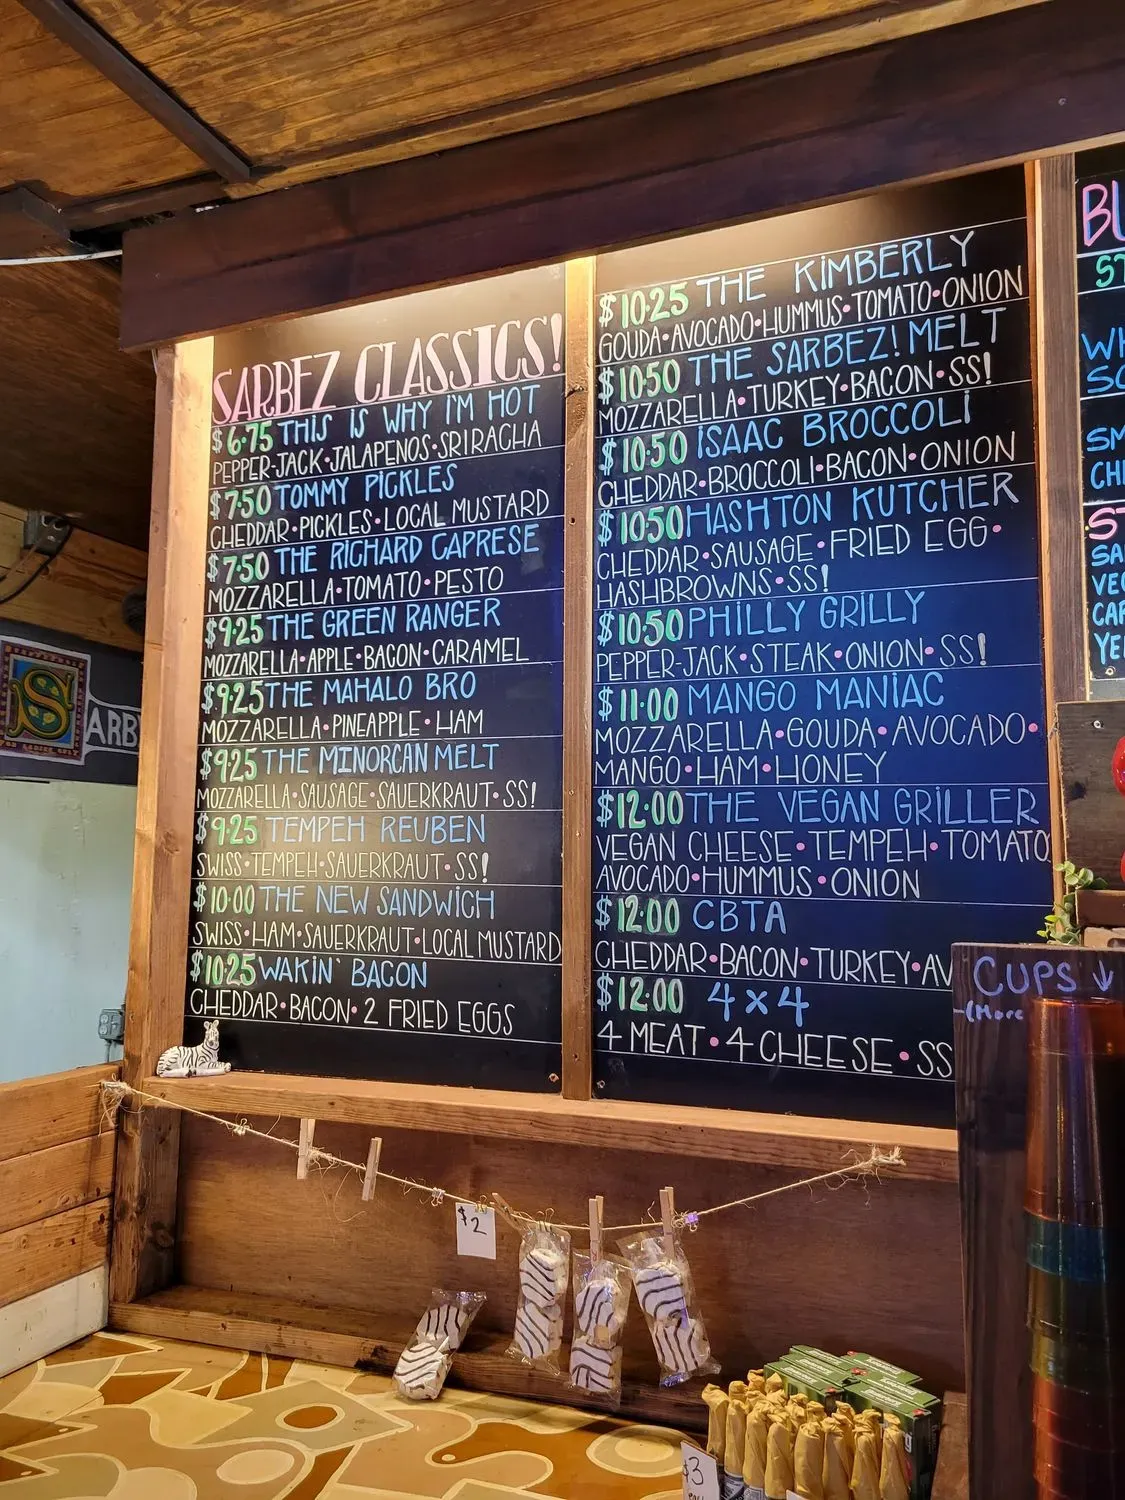 SARBEZ CLASSICS!
$6.75 THIS IS WHY I'M HOT
PEPPER-JACK•JALAPENOS•SRIRACHA
$7.50 TOMMY PICKLES
CHEDDAR•PICKLES•LOCAL MUSTARD
$7.50 THE RICHARD CAPRESE
MOZZARELLA•TOMATO•PESTO
$9.25 THE GREEN RANGER
MOZZARELLA•APPLE•BACON•CARAMEL
$9.25 THE MAHALO BRO
MOZZARELLA•PINEAPPLE•HAM
$9.25 THE MINORCAN MELT
MOZZARELLA•SAUSAGE•SAUERKRAUT•SS!
$9.25 TEMPEH REUBEN
SWISS•TEMPEH•SAUERKRAUT•SS!
$10.00 THE NEW SANDWICH
SWISS•HAM•SAUERKRAUT•LOCAL MUSTARD
$10.25 WAKIN' BACON
CHEDDAR•BACON•2 FRIED EGGS
$10.25 THE KIMBERLY
GOUDA•AVOCADO•HUMMUS•TOMATO•ONION
$10.50 THE SARBEZ! MELT
MOZZARELLA•TURKEY•BACON•SS!
$10.50 ISAAC BROCCOLI
CHEDDAR•BROCCOLI•BACON•ONION
$10.50 HASHTON KUTCHER
CHEDDAR•SAUSAGE•FRIED EGG•
HASHBROWNS•SS!
$10.50 PHILLY GRILLY
PEPPER-JACK•STEAK•ONION•SS!
$11.00 MANGO MANIAC
MOZZARELLA•GOUDA•AVOCADO•
MANGO•HAM•HONEY
$12.00 THE VEGAN GRILLER
VEGAN CHEESE•TEMPEH•TOMATO
AVOCADO•HUMMUS•ONION
$12.00 CBTA
CHEDDAR•BACON•TURKEY•AV
$12.00 4x4
4 MEAT•4 CHEESE•SS
BU
ST
WH
SO
SM
CH
ST
SA
VEG
CAR
YE
S
ARB
CUPS ↓
(More
$2
$3